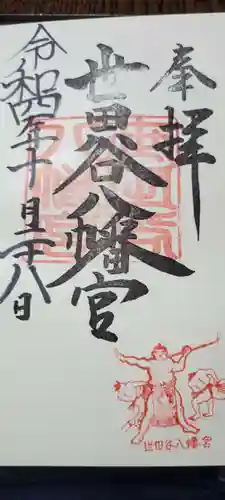 奉拝
世田谷八幡宮
令和四年十一月二十八日
世田谷八幡宮